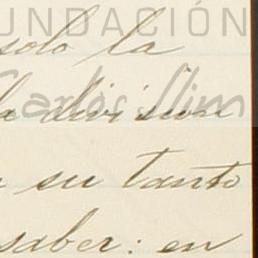 FUNDACIÓN
solo la
Carlos Slim
la division
n su tanto
saber: en